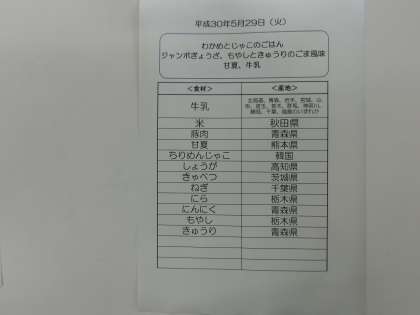 平成30年5月29日（火）
わかめとじゃこのごはん
ジャンボぎょうざ、もやしときゅうりのごま風味
甘夏、牛乳
＜食材＞ ＜産地＞
牛乳 北海道、青森、岩手、宮城、山形、埼玉、栃木、群馬、神奈川、静岡、千葉、福島のいずれか
米 秋田県
豚肉 青森県
甘夏 熊本県
ちりめんじゃこ 韓国
しょうが 高知県
きゃべつ 茨城県
ねぎ 千葉県
にら 栃木県
にんにく 青森県
もやし 栃木県
きゅうり 青森県